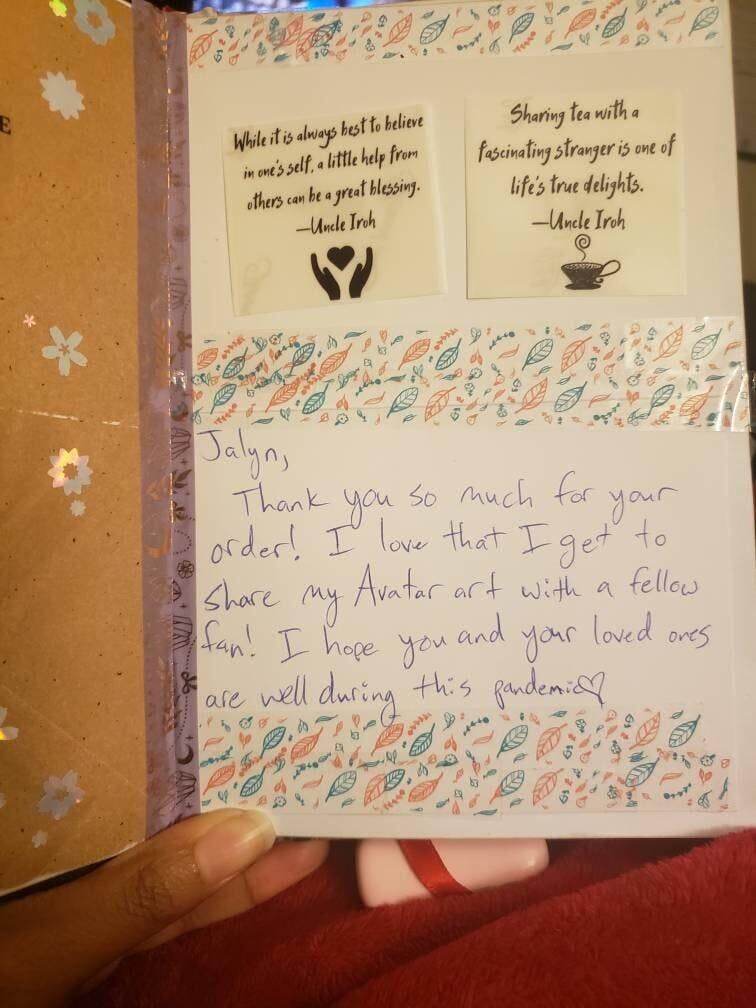 E
While it is always best to believe
in one's self, a little help from
others can be a great blessing.
—Uncle Iroh
Sharing tea with a
fascinating stranger is one of
life's true delights.
—Uncle Iroh
Jalyn,
Thank you so much for your
order! I love that I get to
share my Avatar art with a fellow
fan! I hope you and your loved ones
are well during this pandemic♡